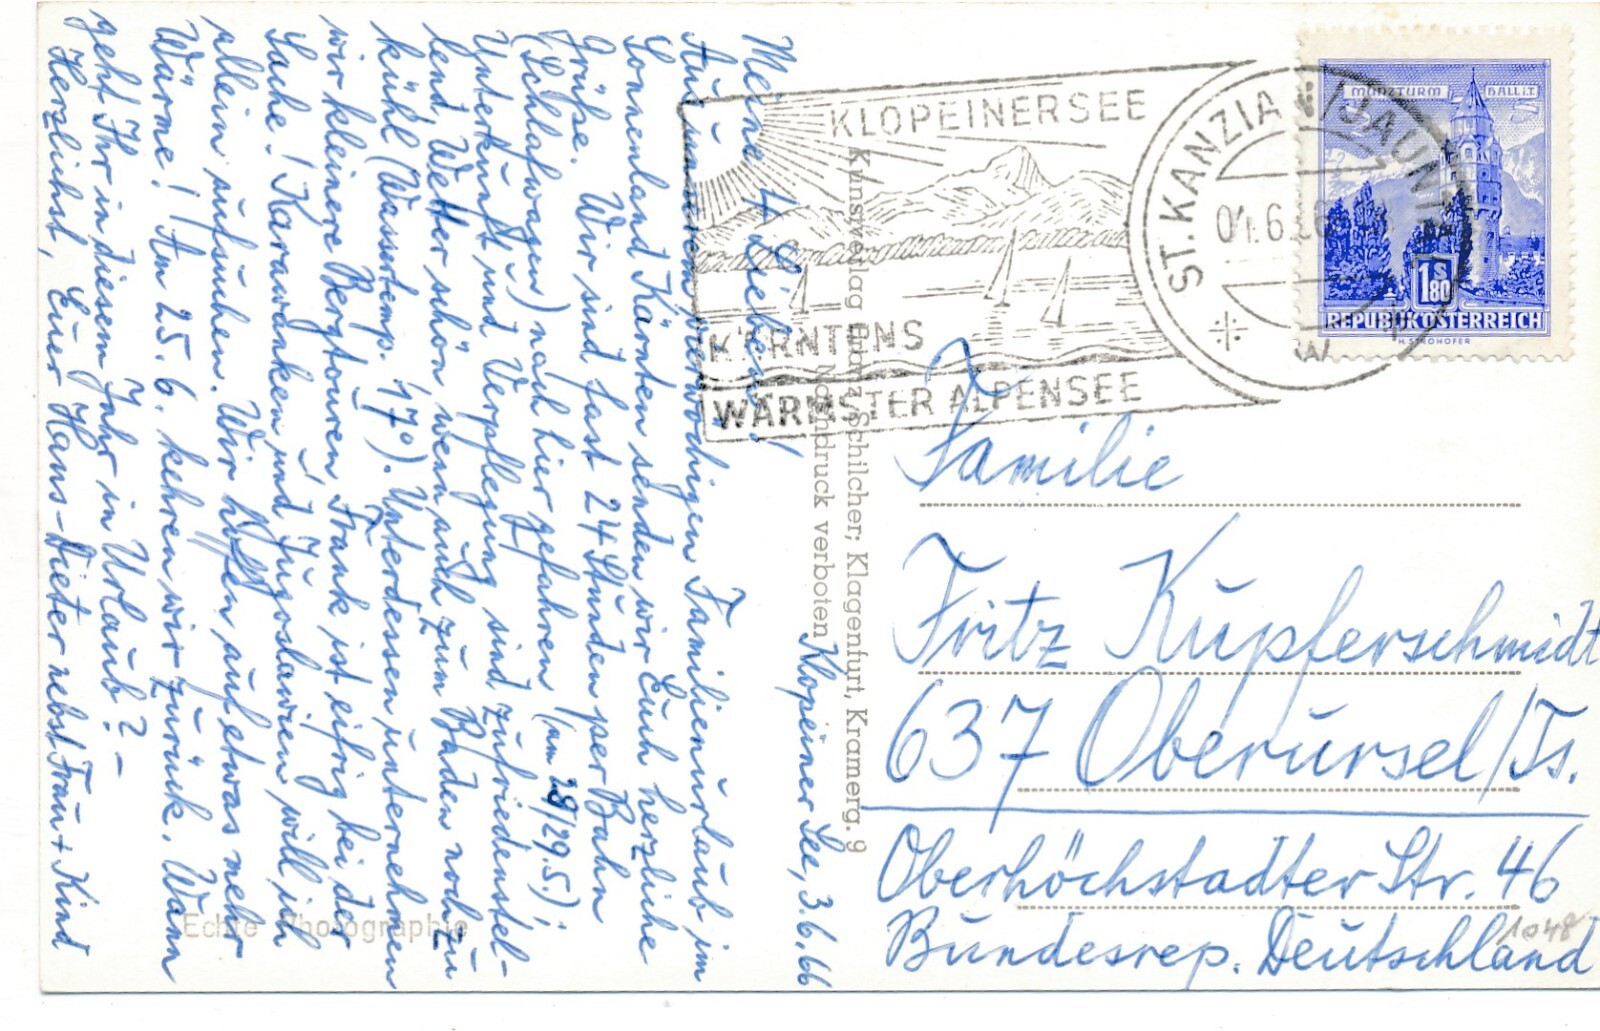 Klopeiner See, 3.6.66
Meine 4 Lieben!
Aus unserem 4 wöchigen Familienurlaub im
Sonnenland Kärnten senden wir Euch herzliche
Grüße. Wir sind fast 24 Stunden per Bahn
(Schlafwagen) nach hier gefahren (am 28/29.5.);
Unterkunft und Verpflegung sind zufriedenstel-
lend, Wetter schön wenn auch zum Baden noch zu
kühl (Wassertemp. 17°). Unterdessen unternehmen
wir kleinere Bergtouren, Frank ist eifrig bei der
Sache! Karawanken und Jugoslawien will ich
allein aufsuchen. Wir hoffen auf etwas mehr
Wärme! Am 25.6. kehren wir zurück. Wann
geht Ihr in diesem Jahr in Urlaub? –
Herzlichst, Euer Hans-Dieter nebst Frau + Kind
Echte Photographie
Kunstverlag Franz Schilcher; Klagenfurt, Kramerg. 9
Nachdruck verboten
KLOPEINERSEE
KÄRNTENS
WÄRMSTER ALPENSEE
ST. KANZIAN I. JAUNTAL
MÜNZTURM HALL i.T.
1 S 80
REPUBLIK ÖSTERREICH
H. STROHOFER
Familie
Fritz Kupferschmidt
637 Oberursel/Ts.
Oberhöchstadter Str. 46
Bundesrep. Deutschland
1048